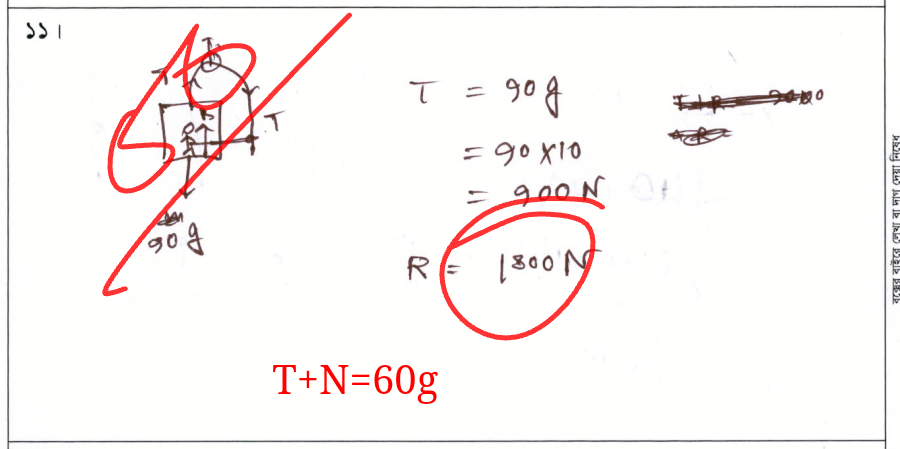 ১১।
T
T
T
90 g
T = 90 g
= 90 × 10
= 900 N
R = 1800 N
T+N=60g
বক্সের বাইরে লেখা বা দাগ দেয়া নিষেধ